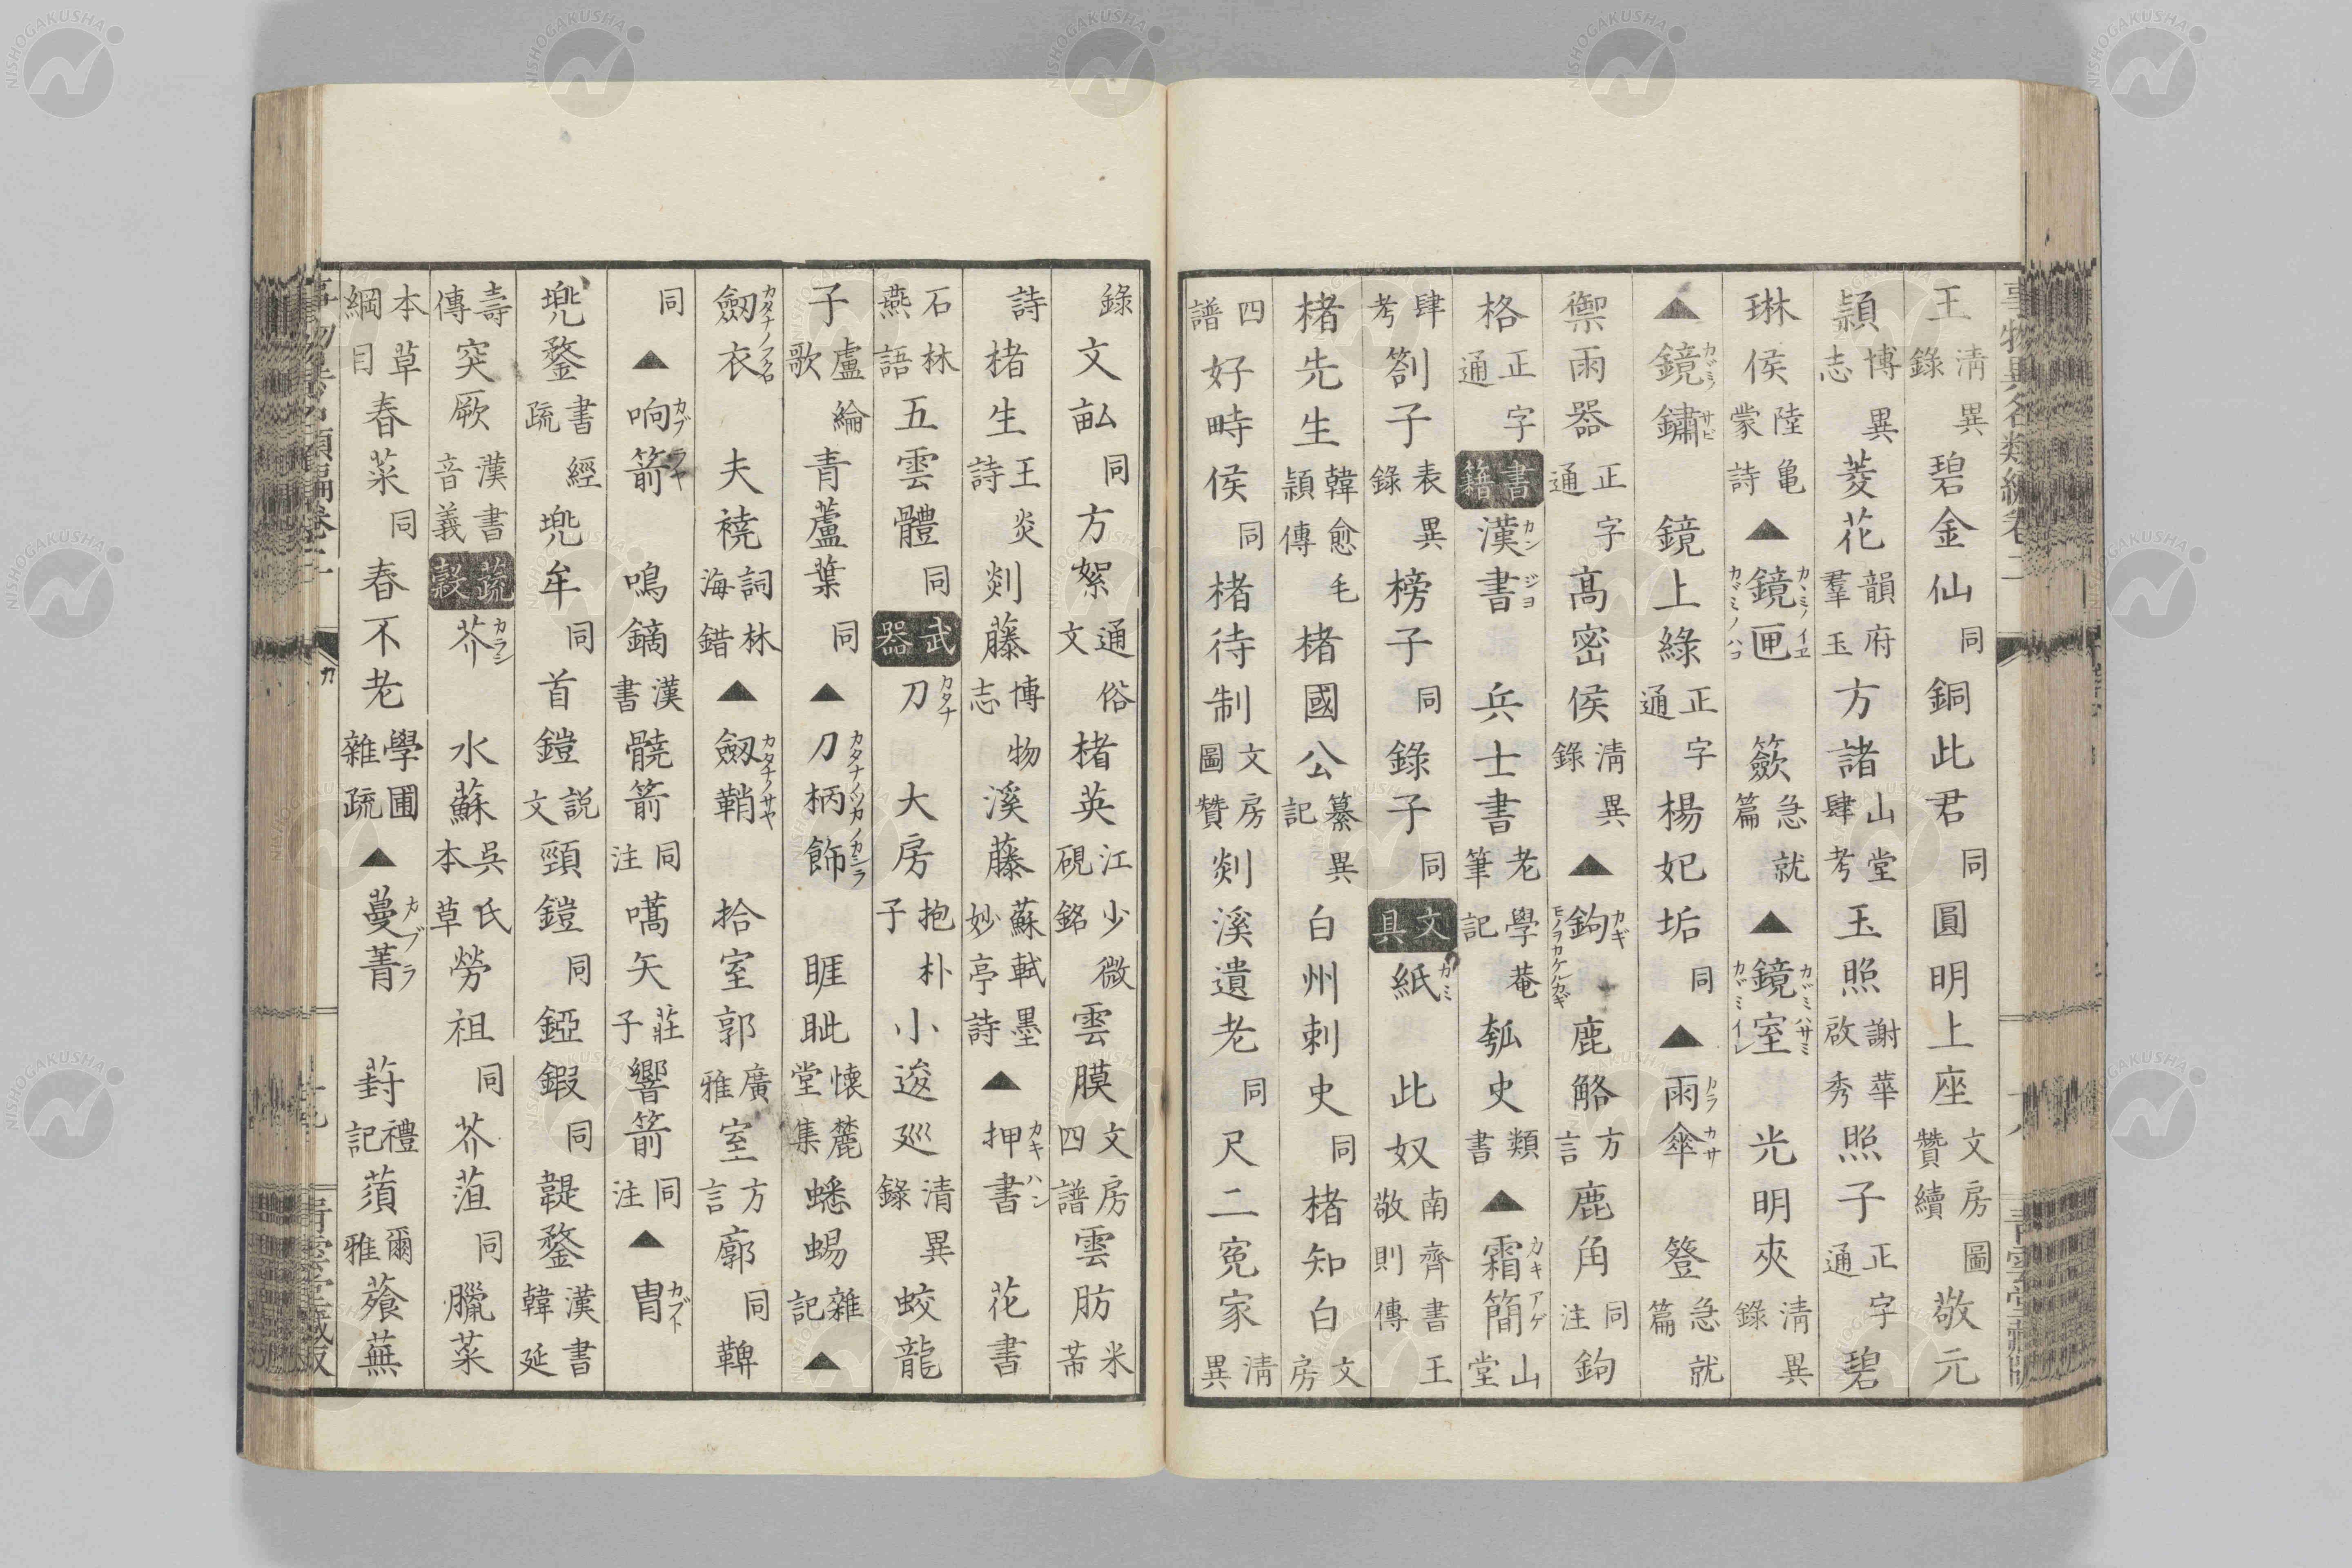 王淸異錄碧金仙同銅此君同圓明上座文房圖贊續敬元
頴博異志菱花韻府羣玉方諸山堂肆考玉照謝華啟秀照子正字通碧
琳侯陸龜蒙詩▲鏡匣カヾミノイヱカヾミノハコ籨急就篇▲鏡室カヾミハサミカヾミイレ光明夾淸異錄
▲鏡鏽カヾミサビ鏡上綠正字通楊妃垢同▲雨傘カラカサ簦急就篇
禦雨器正字通髙密侯淸異錄▲鉤カギモノヲカケルカギ鹿觡方言鹿角同注鉤
格正字通書籍漢書カンジヨ兵士書老學菴筆記瓠史類書▲霜簡カキアゲ山堂
肆考劄子表異錄榜子同錄子同文具紙カミ此奴南齊書王敬則傳
楮先生韓愈毛頴傳楮國公纂異記白州刺史同楮知白文房
四譜好畤侯同楮待制文房圖贊剡溪遺老同尺二寃家淸異
錄文畝同方絮通俗文楮英江少微硯銘雲膜文房四譜雲肪米芾
詩楮生王炎詩剡藤博物志溪藤蘇軾墨妙亭詩▲押書カキハン花書
石林燕語五雲體同武器刀カタナ大房抱朴子小逡巡清異錄蛟龍
子盧綸歌青蘆葉同▲刀柄飾カタナノツカノカシラ睚眦懷麓堂集蟋蜴雜記▲
劒衣カタナノフクロ夫襓詞林海錯▲劒鞘カタナノサヤ拾室郭廣雅室方言廓同鞞
同▲响箭カブラヤ鳴鏑漢書髐箭同注嚆矢莊子響箭同注▲冑カブト
兠鍪書經疏兠牟同首鎧說文頸鎧同錏鍜同鞮鍪漢書韓延
壽傳突厥漢書音義蔬穀芥カラシ水蘇吳氏本草勞祖同芥菹同臘菜
本草綱目春菜同春不老學圃雜疏▲蔓菁カブラ葑禮記蕦爾雅蕵蕪